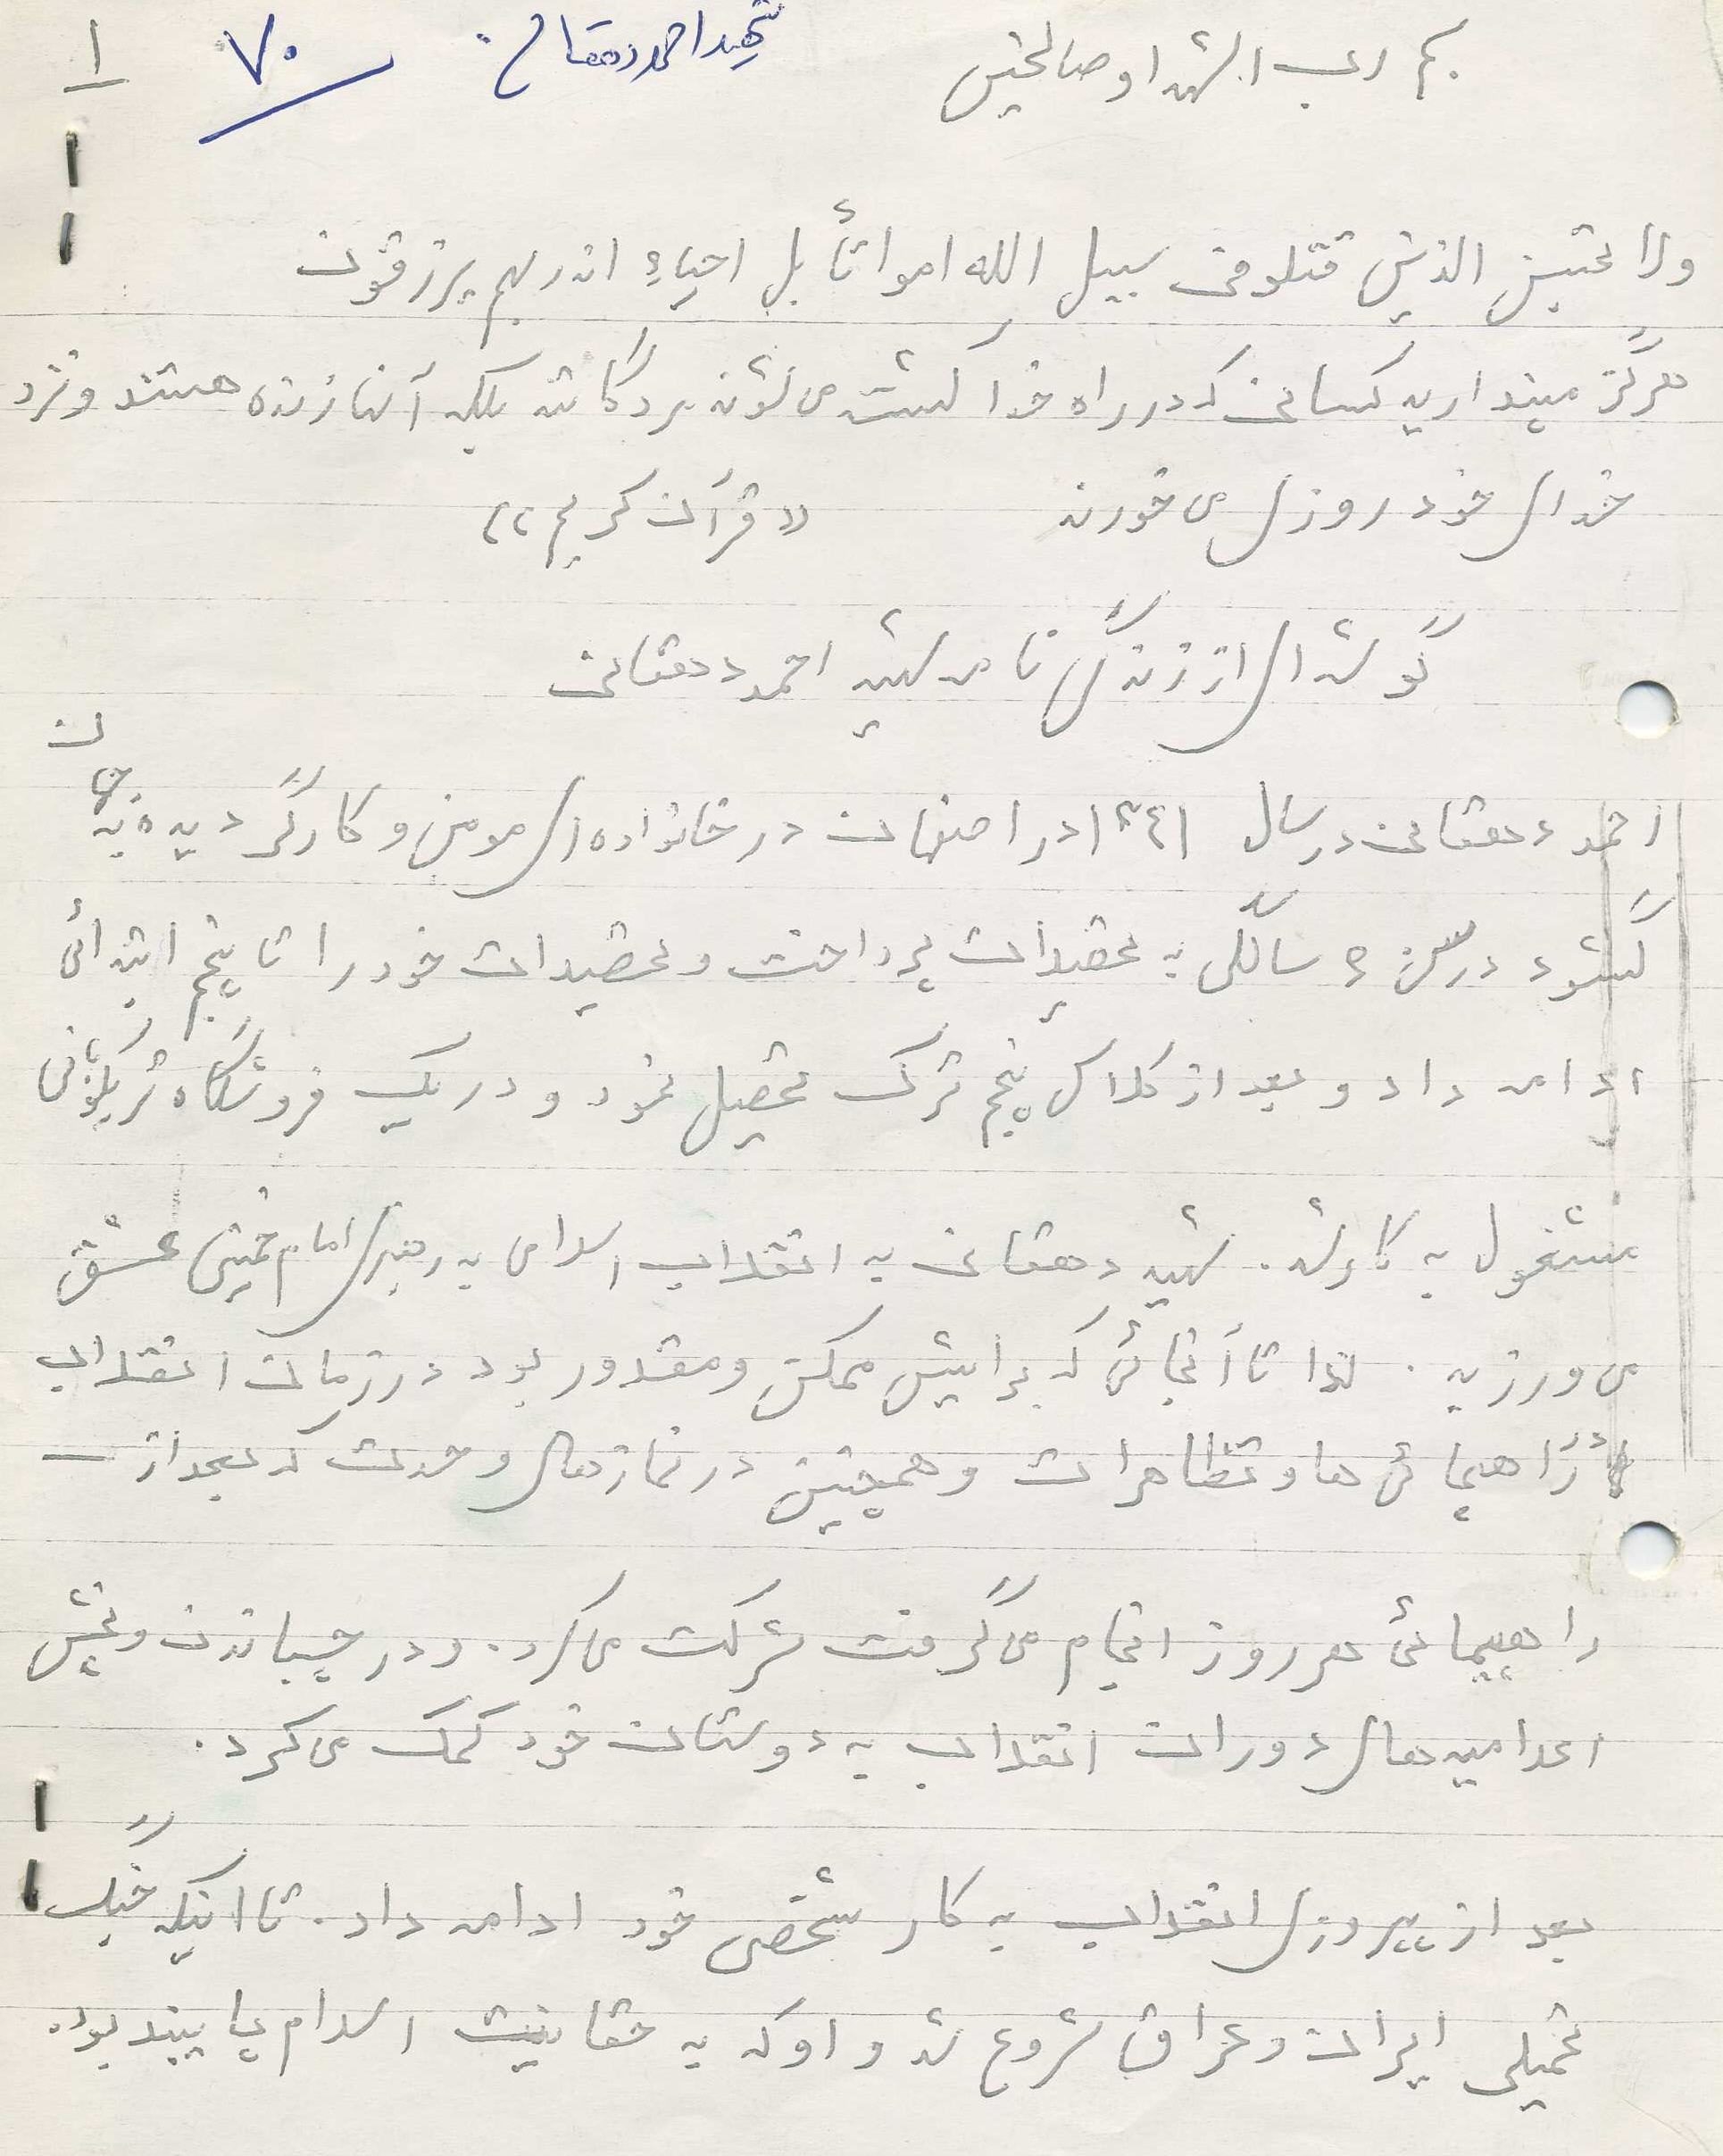 بسم رب الشهدا و صالحین
شهید احمد دهقانی
۷۰
۱
ولا تحسبن الذین قتلو فی سبیل الله امواتاً بل احیاء اندربهم یرزقون
هرگز مپندارید کسانی که در راه خدا کشته می شوند مردگانند بلکه آنها زنده هستند و نزد
خدای خود روزی می خورند «قرآن کریم»
گوشه ای از زندگی نامه شهید احمد دهقانی
احمد دهقانی در سال ۱۳٤۱ در اصفهان در خانواده ای مومن و کارگر دیده به جهان
گشود در سن ۶ سالگی به تحصیلات پرداخت و تحصیلات خود را تا پنجم ابتدائی
ادامه داد و بعد از کلاس پنجم ترک تحصیل نمود و در یک فروشگاه
مشغول به کار شد. شهید دهقانی به انقلاب اسلامی به رهبری امام خمینی عشق
می ورزید. لذا تا آنجائی که برایش ممکن و مقدور بود در زمان انقلاب
در راهپیمائی ها و تظاهرات و همچنین در نمازهای وحدت که بعد از
راهپیمائی هر روز انجام می گرفت شرکت می کرد. و در چسباندن و پخش
اعلامیه های دوران انقلاب به دوستان خود کمک می کرد.
بعد از پیروزی انقلاب به کار شخصی خود ادامه داد. تا اینکه جنگ
تحمیلی ایران و عراق شروع شد و او که به حقانیت اسلام پایبند بود.